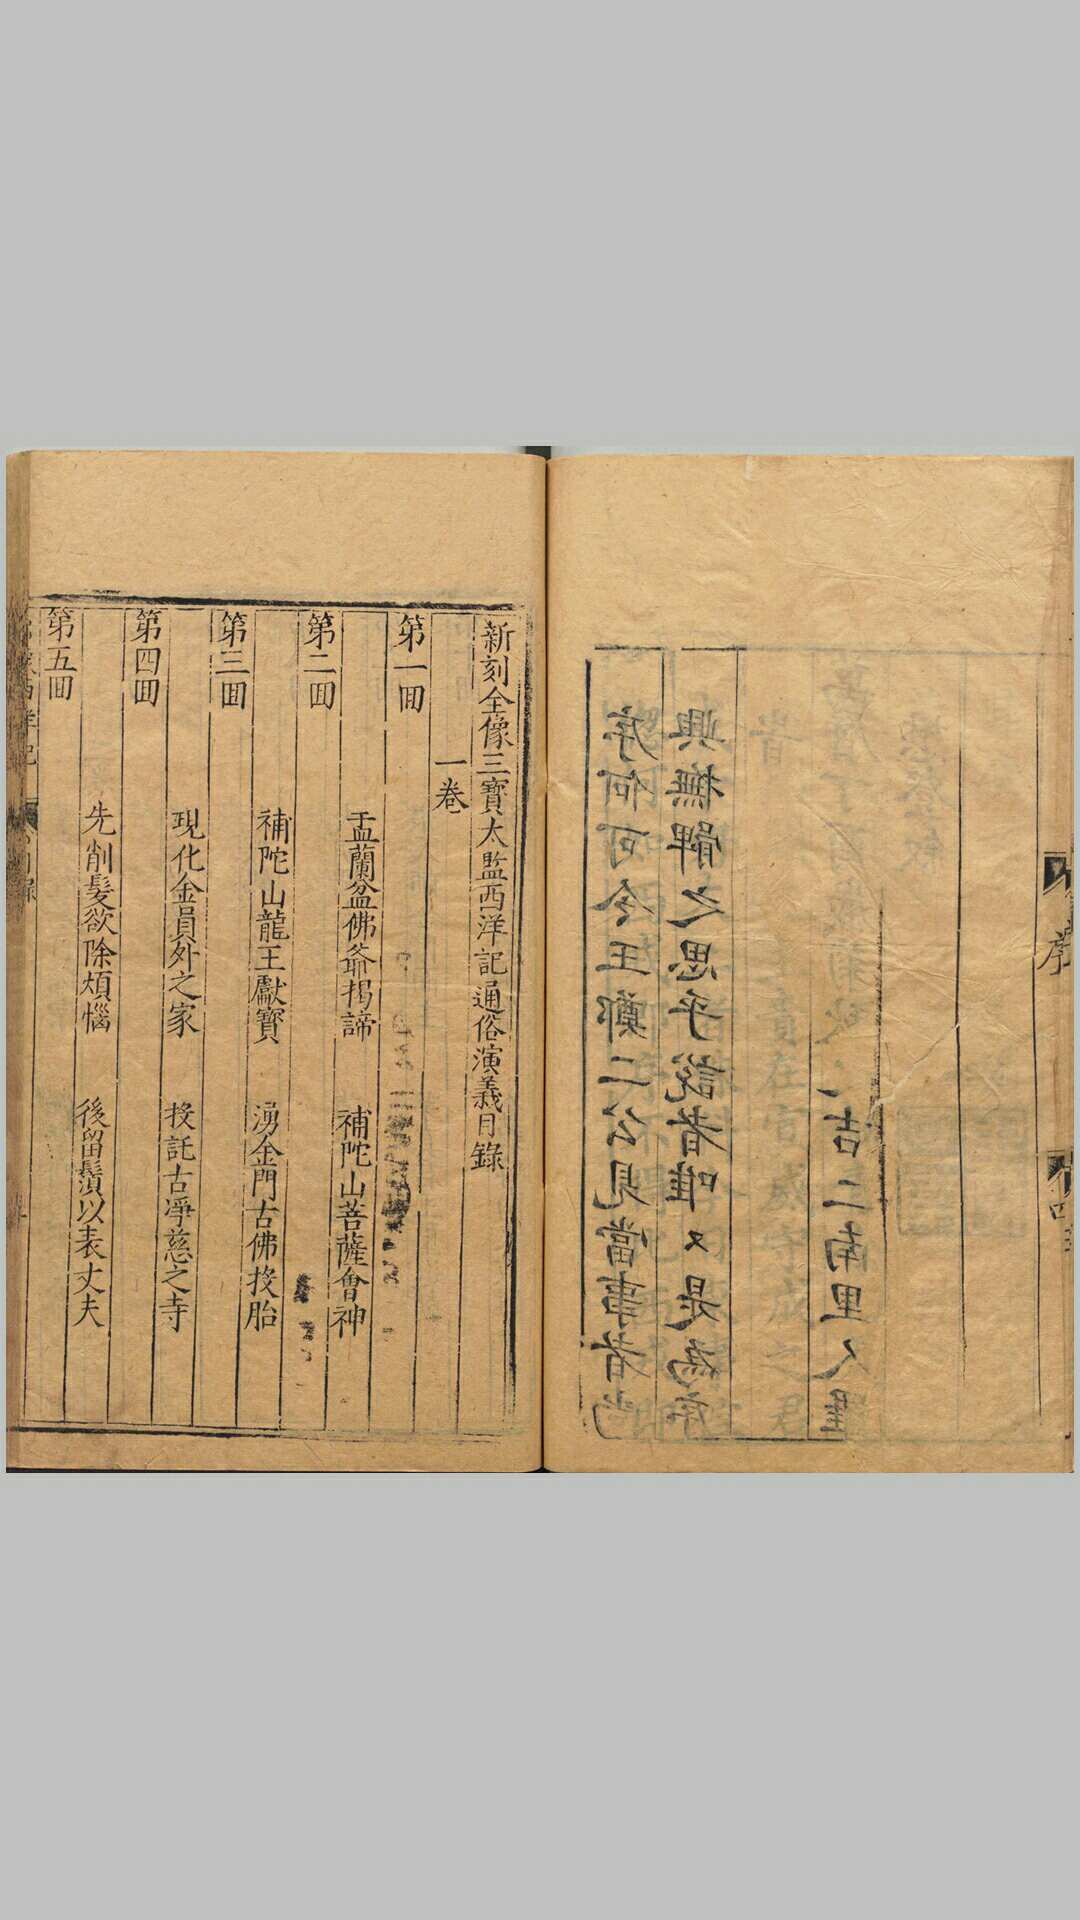 序何可令王鄭二公見當事者尚
興撫髀之思乎說者唯〻是為序
吉二南里人羅
序
新刻全像三寶太監西洋記通俗演義目錄
一卷
第一囬
盂蘭盆佛爺揭諦　補陀山菩薩會神
第二囬
補陀山龍王獻寶　湧金門古佛投胎
第三囬
現化金員外之家　投託古淨慈之寺
第四囬
先削髮欲除煩惱　後留鬚以表丈夫
第五囬